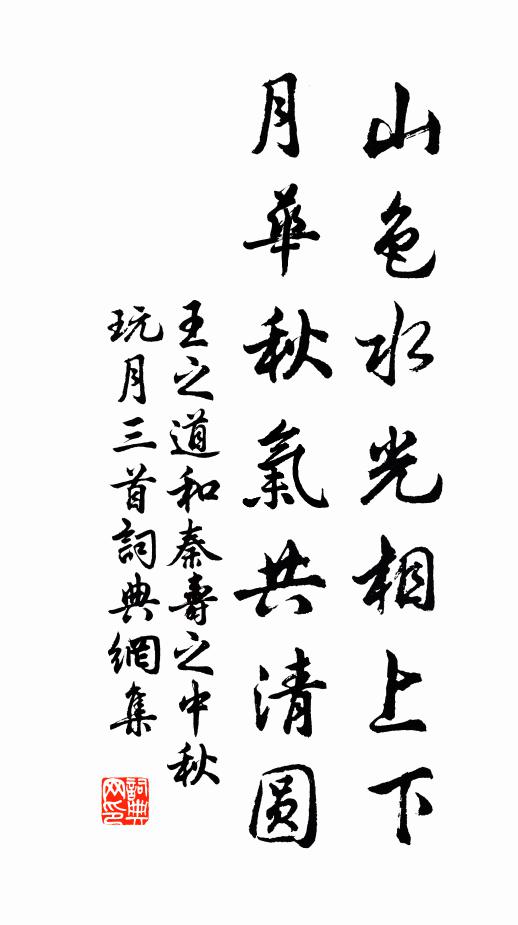 山色水光相上下
月華秋氣共清圆
王之道和秦壽之中秋
玩月三首詞典網集
詞典
网印